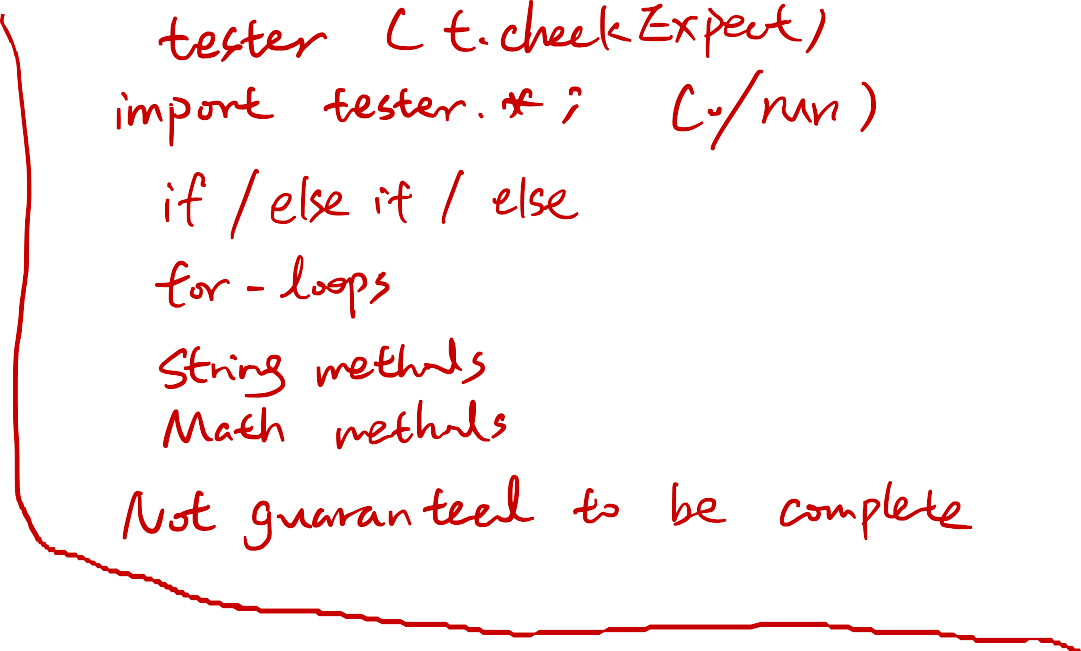 tester (t.checkExpect)
import tester.*; (./run)
if / else if / else
for-loops
String methods
Math methods
Not guaranteed to be complete